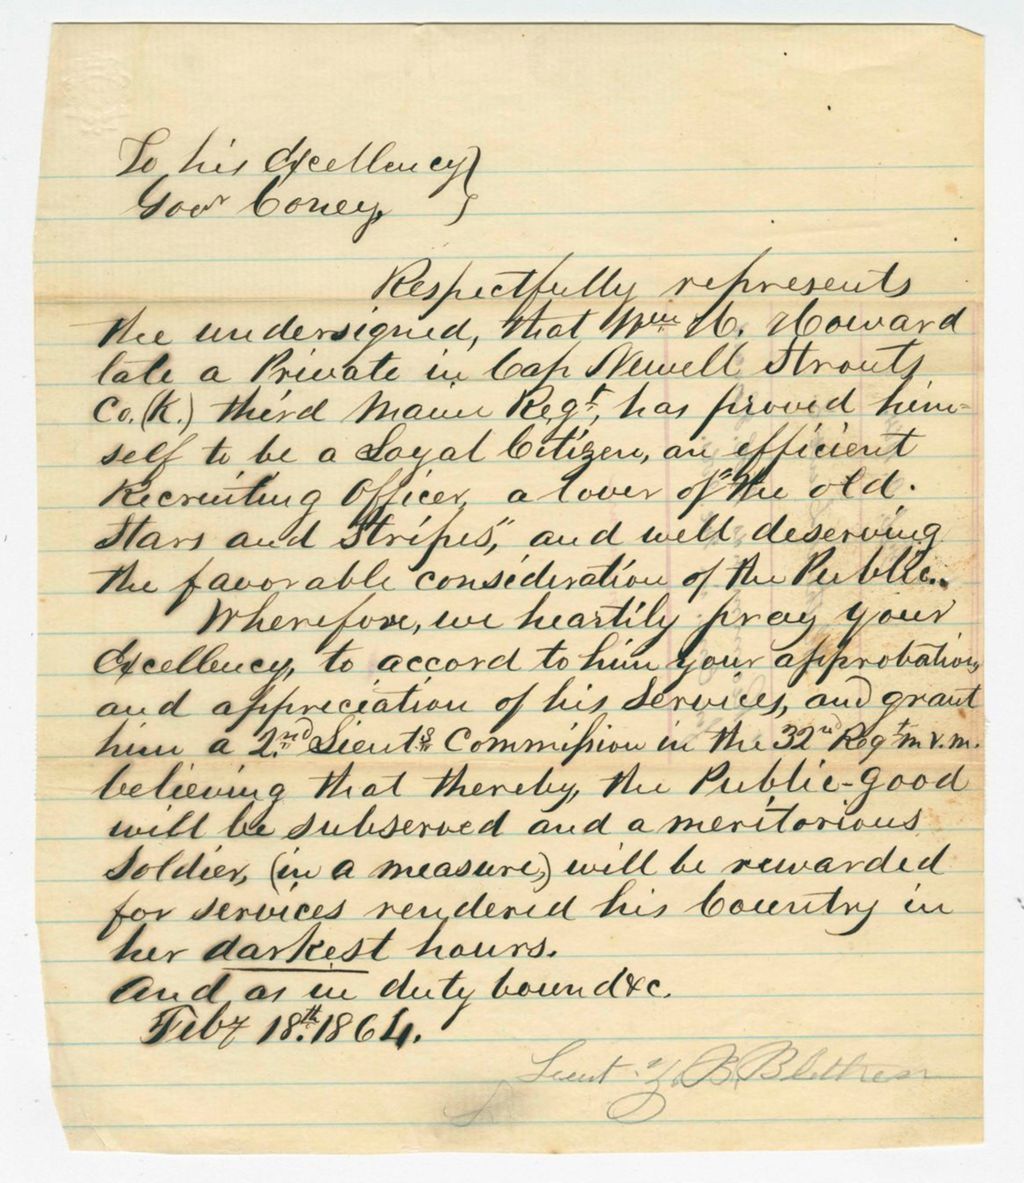 To his Excellency
Govr Coney,
Respectfully represents
the undersigned, that Wm H. Howard
late a Private in Cap Newell Strouts
Co. (K.) third Maine Regt, has proved him=
self to be a Loyal Citizen, an efficient
Recruiting Officer, a lover of "the old
Stars and Stripes," and well deserving
the favorable consideration of the Public.
Wherefore, we heartily pray your
Excellency, to accord to him your approbation,
and appreciation of his services, and grant
him a 2nd Lieuts Commission in the 32nd Regt m. v. m.
believing that thereby, the Public-good
will be subserved and a meritorious
Soldier, (in a measure,) will be rewarded
for services rendered his Country in
her darkest hours.
And as in duty bound &c.
Feby 18th. 1864.
Lieut. B. Blethen